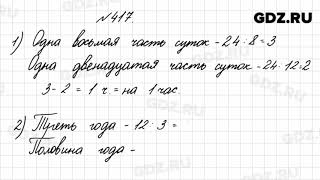 GDZ.RU
№417
1) Одна восьмая часть суток - 24 : 8 = 3
Одна двенадцатая часть суток - 24 : 12 = 2
3 - 2 = 1 ч = на 1 час.
2) Треть года - 12 : 3 =
Половина года -